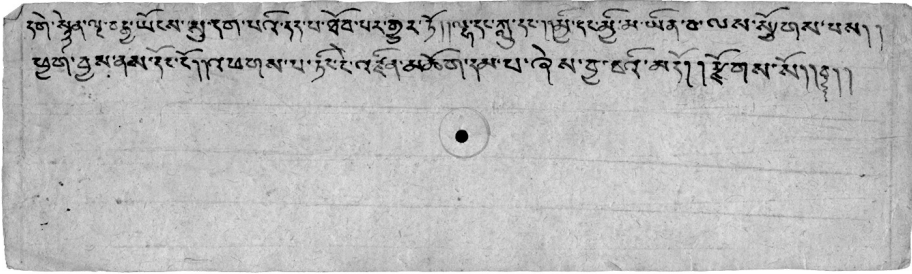 དགེ་སྙེན་ལྔ་བརྒྱ་ཡོངས་སུ་དག་པའི་དད་པ་ཐོབ་པར་གྱུར་ཏོ། །ལྷ་དང་ཀླུ་དང་། མྱི་དང་མྱི་མ་ཡིན་བ་ལས་སྩོགས་པས། །
ཕྱག་བྱས་ནས་དོང་ངོ༌། །འཕགས་པ་ཏིང་ངེ་འཛིན་མཆོག་དམ་པ་ཞེས་བྱ་བའི་མདོ། །རྫོགས་སོ།། ། །